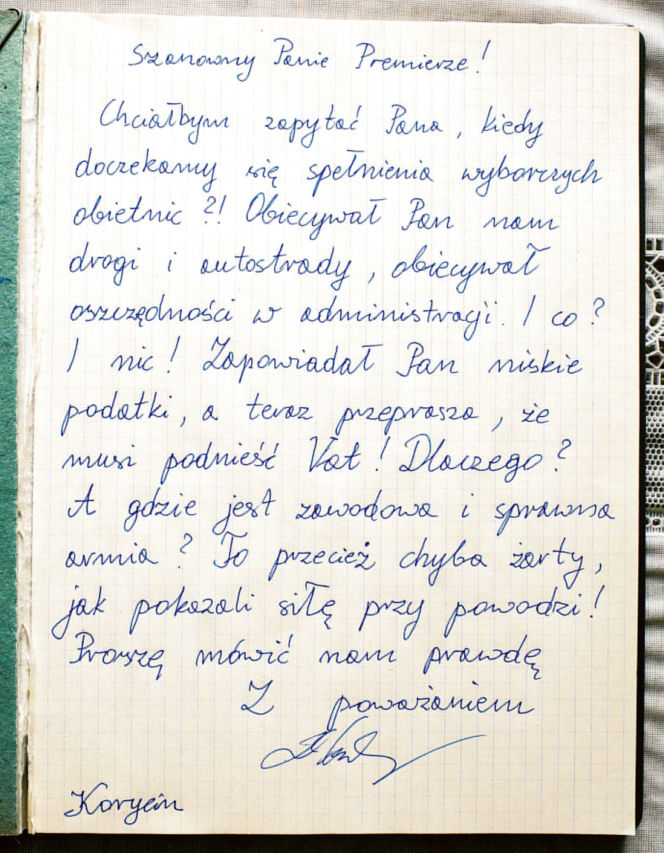 Szanowny Panie Premierze!
Chciałbym zapytać Pana, kiedy
doczekamy się spełnienia wyborczych
obietnic ?! Obiecywał Pan nam
drogi i autostrady, obiecywał
oszczędności w administracji. I co?
I nic! Zapowiadał Pan niskie
podatki, a teraz przeprasza, że
musi podnieść Vat! Dlaczego?
A gdzie jest zawodowa i sprawna
armia? To przecież chyba żarty,
jak pokazali siłę przy powodzi!
Proszę mówić nam prawdę
Z poważaniem